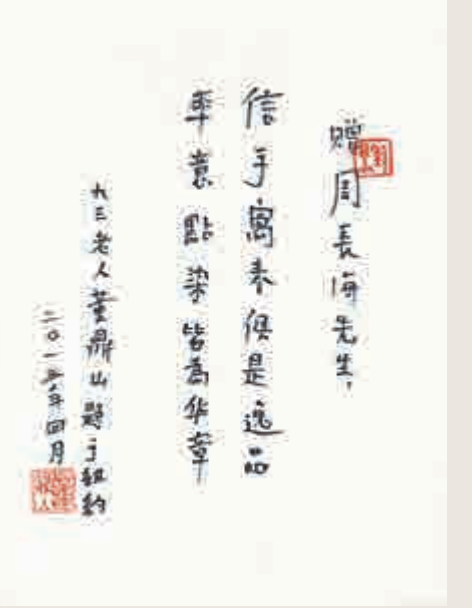 贈周長海先生，
信手寫來俱是逸品
率意點染皆為华章
九三老人董鼎山題于紐約
二〇一五年四月